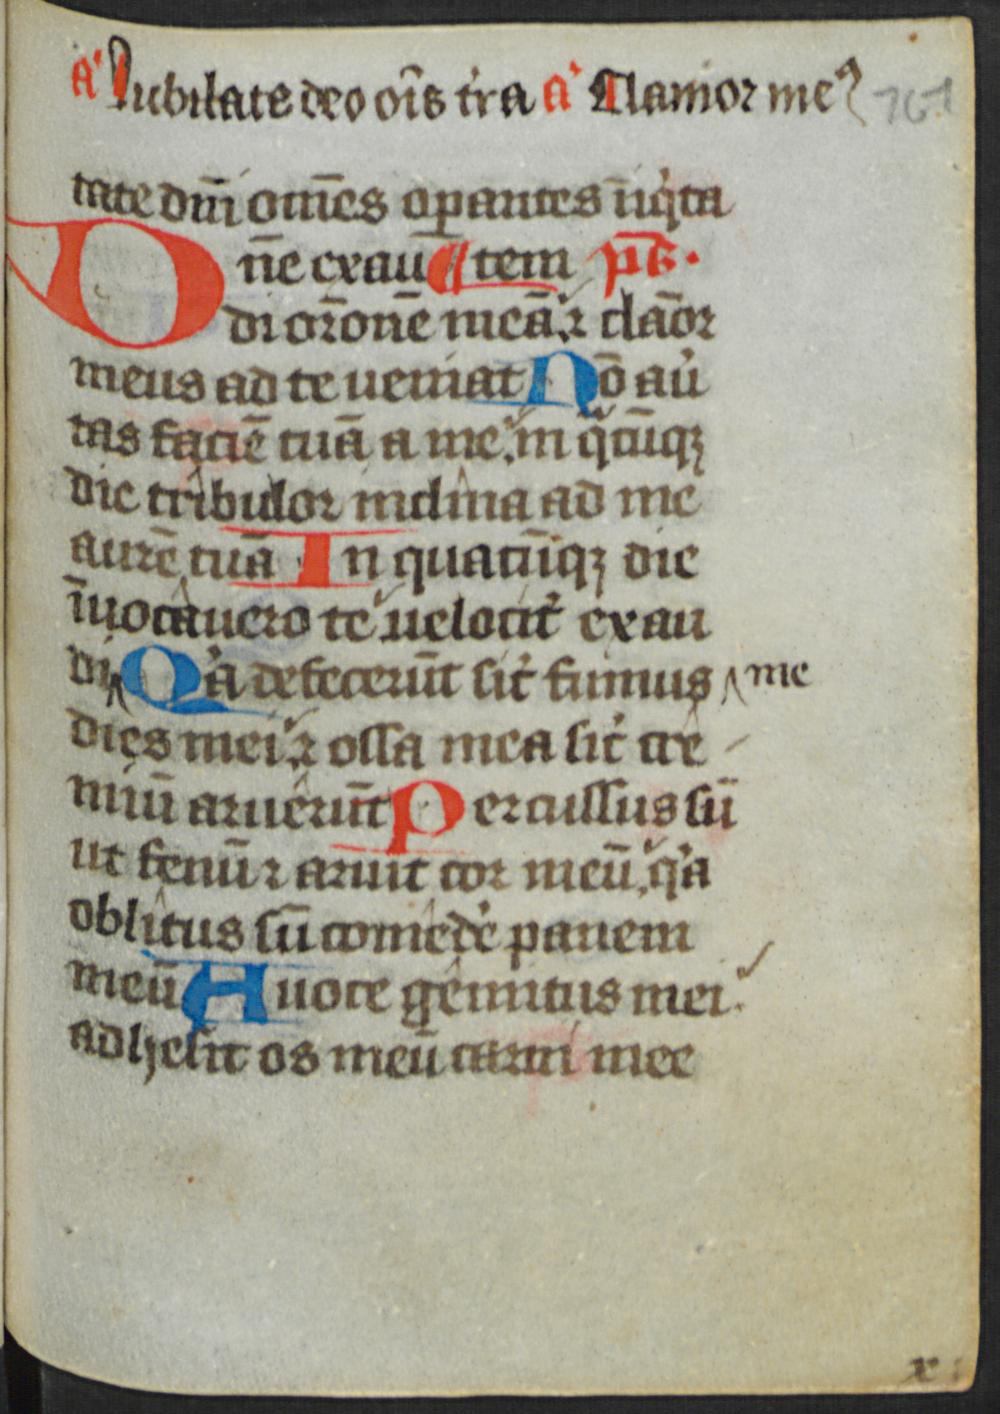 a' Iubilate deo oīs t'ra a' Clamor meꝰ 767
tate dn̄i om̄es oꝑantes iīq'ta
Dn̄e exau ¶ Item ps̄.
di or̄onē meā ⁊ clāor
meus ad te ueniat Nō au'
tas faciē tuā a me in q̄cūqꝫ
die tribulor inclina ad me
aurē tuā In quacūqꝫ die
īuocauero te uelocit' exau
di Q'a defecerūt sic̄ fumus me
dies mei ⁊ ossa mea sic̄ cre
miū aruerūt Percussus sū
ut fenū ⁊ aruit cor meū q'a
oblitus sū comede' panem
meū A uoce gemitus mei
adhesit os meū carni mee